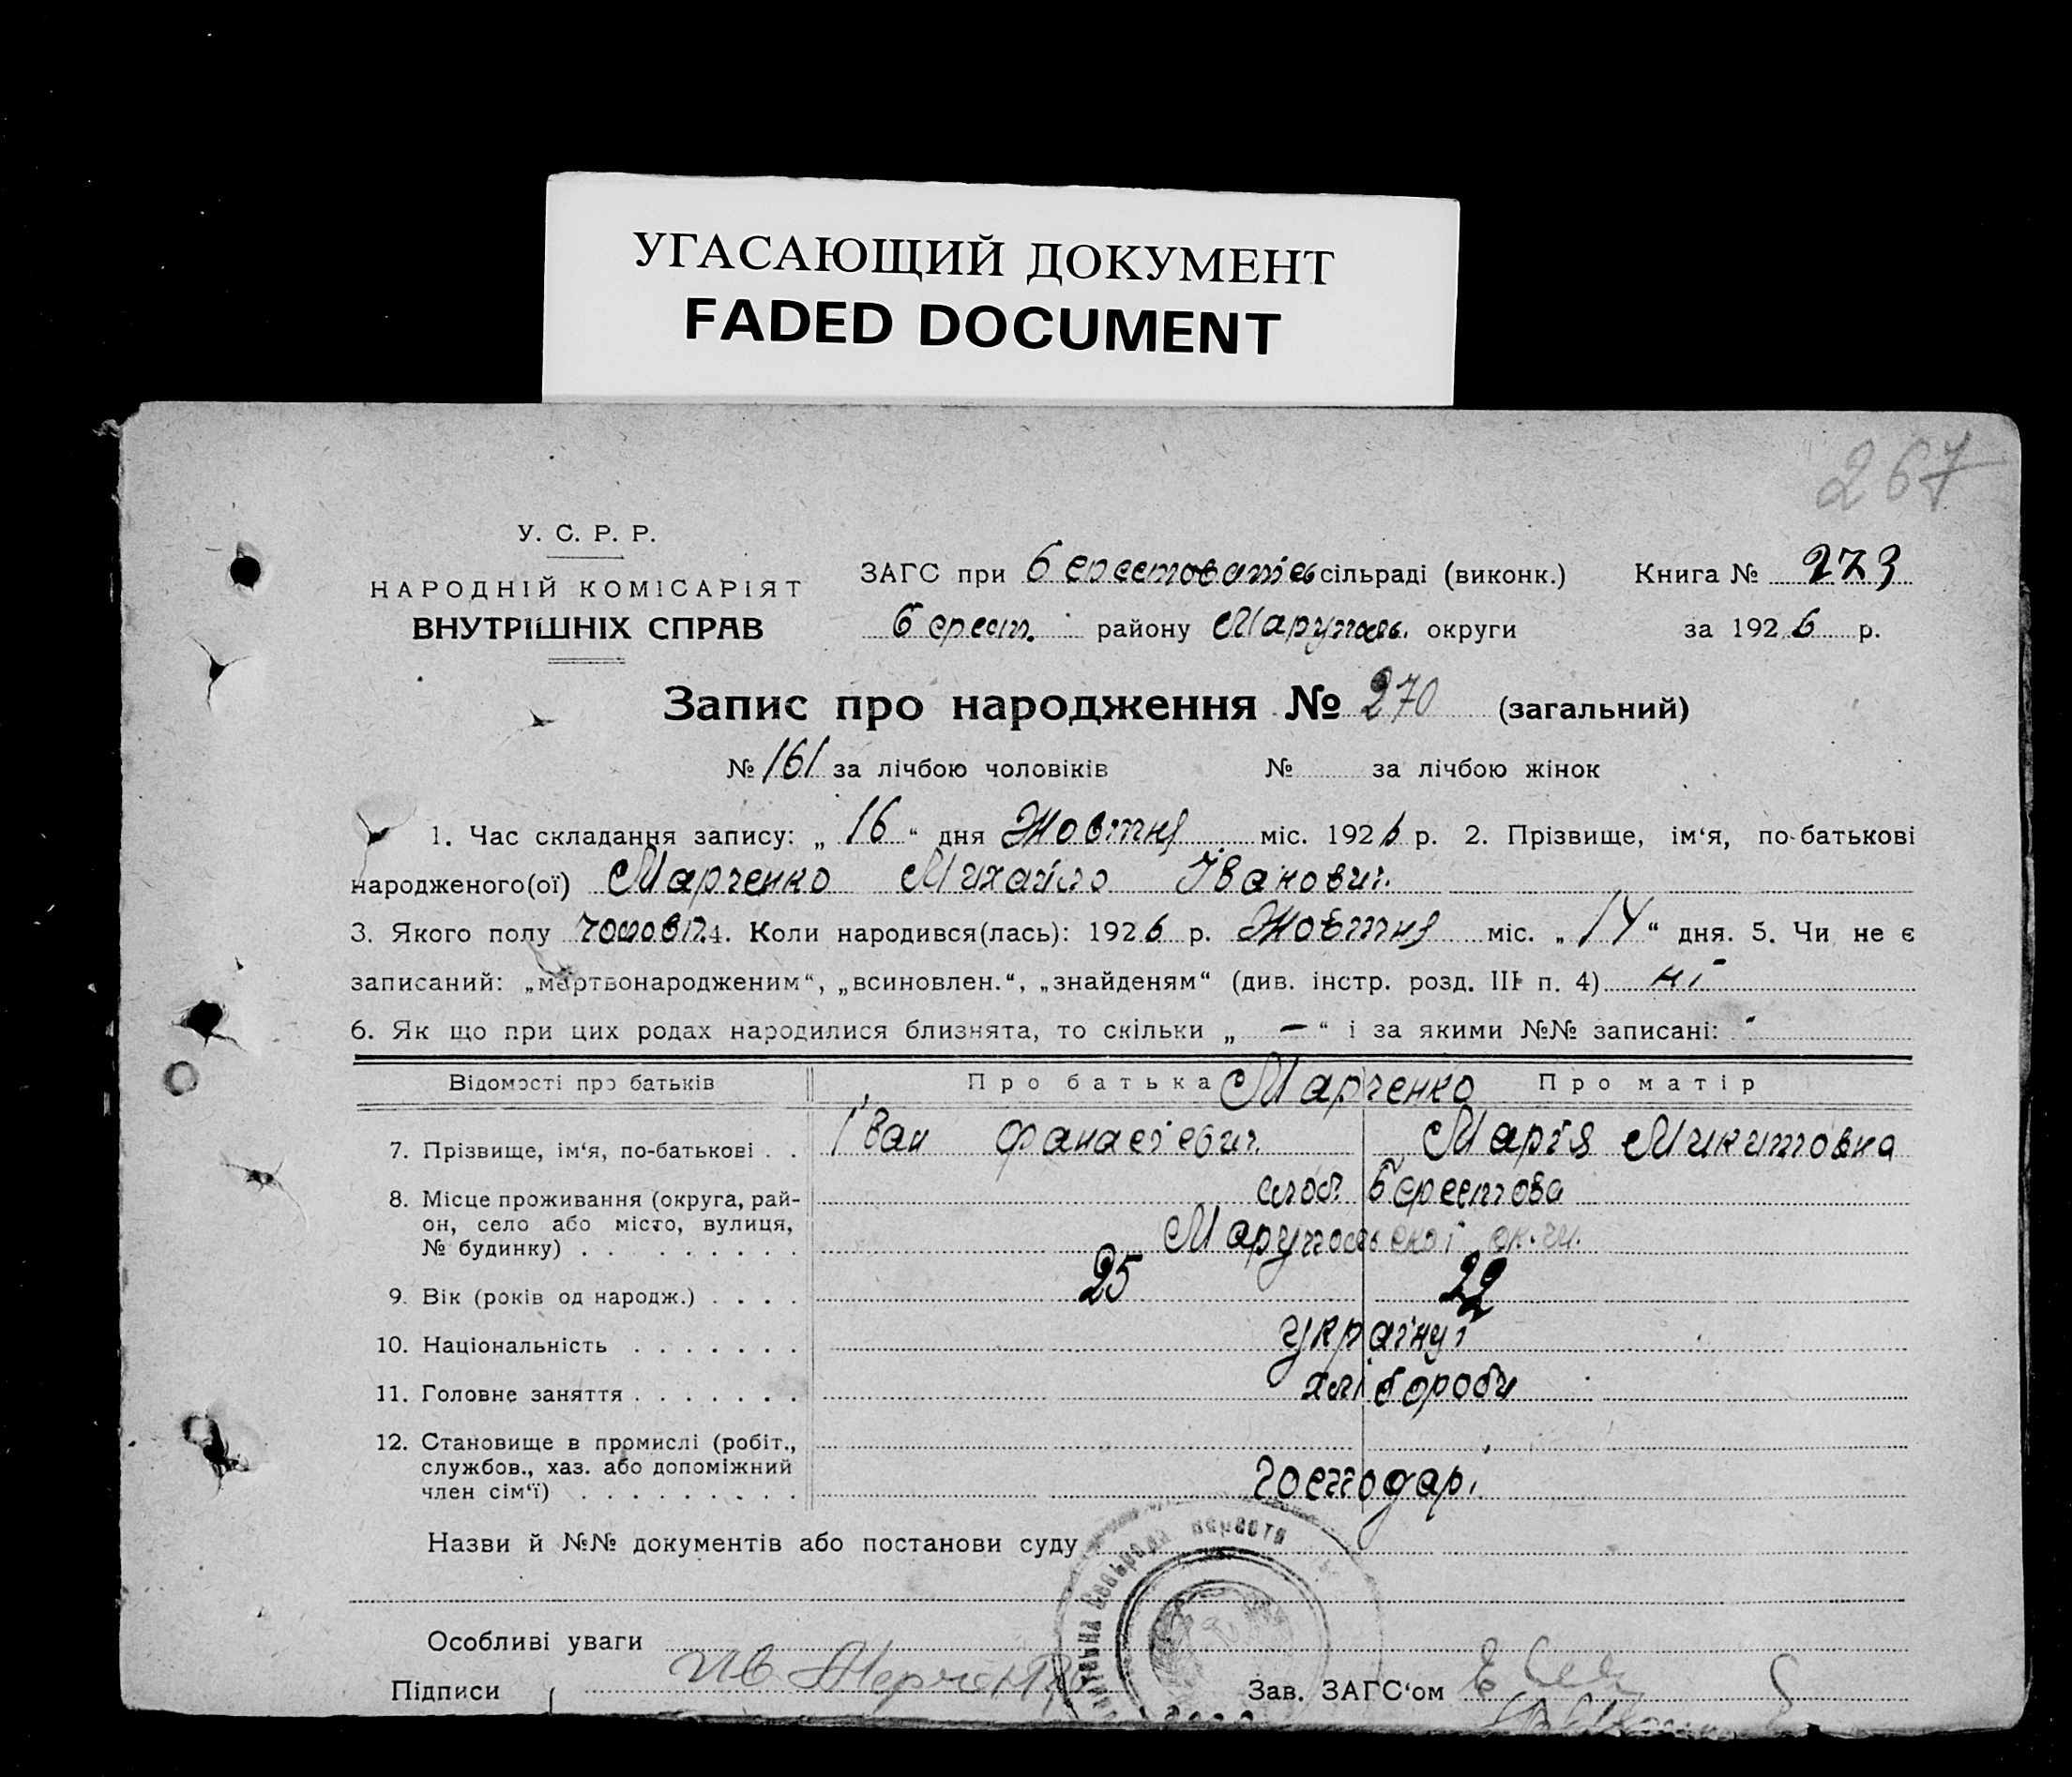 УГАСАЮЩИЙ ДОКУМЕНТ
FADED DOCUMENT
267
У. С. Р. Р.
НАРОДНІЙ КОМІСАРІЯТ
ВНУТРІШНІХ СПРАВ
ЗАГС при сільраді (виконк.) Книга № 273
Берест. району Маруполь. округи за 1926 р.
Запис про народження № 270 (загальний)
№ 161 за лічбою чоловіків № за лічбою жінок
1. Час складання запису: „ 16 “ дня Жовтня міс. 1926 р. 2. Прізвище, ім‘я, по-батькові
народженого(ої) Марченко Михайло Іванович.
3. Якого полу чоловіч. 4. Коли народився(лась): 1926 р. Жовтня міс. „ 14 “ дня. 5. Чи не є
записаний: „мертвонародженим“, „всиновлен.“, „знайденям“ (див. інстр. розд. III п. 4) ні
6. Як що при цих родах народилися близнята, то скільки „ — “ і за якими №№ записані: -
Відомості про батьків Про батька Марченко Про матір
7. Прізвище, ім‘я, по-батькові . . Іван Фанасієвич. Марія Микитовна
8. Місце проживання (округа, рай-
он, село або місто, вулиця,
№ будинку) . . . . . . . . .
слоб. Берестова
Марупольської ок.
9. Вік (років од народж.) . . . . 25 22
10. Національність . . . . . . . українці
11. Головне заняття . . . . . . . хлібороби
12. Становище в промислі (робіт.,
службов., хаз. або допоміжний
член сім‘ї) . . . . . . . . . господар.
Назви й №№ документів або постанови суду
Особливі уваги
Підписи Ив Марченко Зав. ЗАГС‘ом